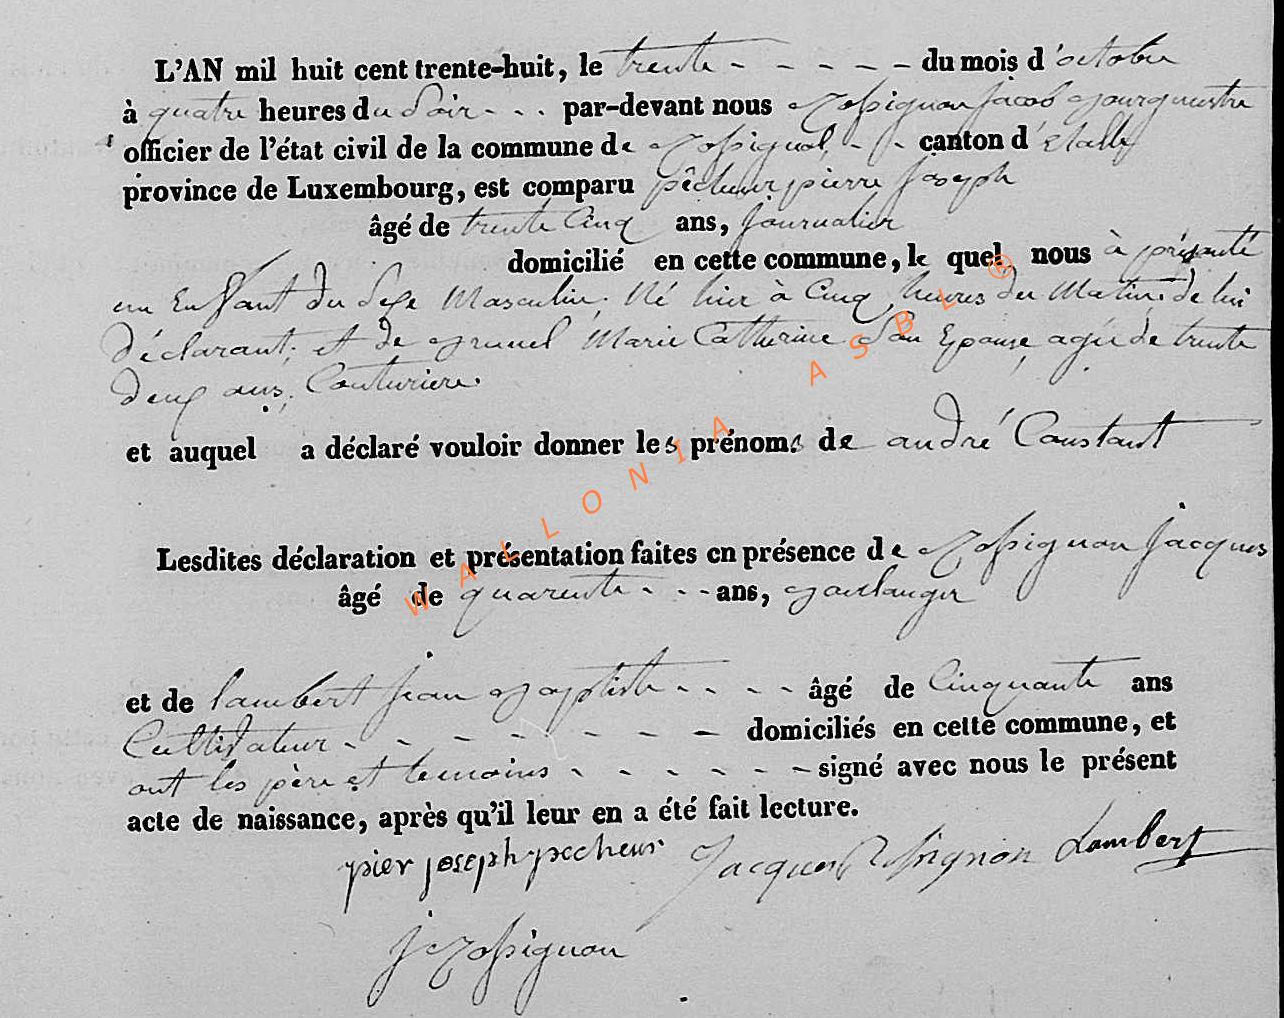 L'AN mil huit cent trente-huit, le trente - - - - - du mois d'octobre
à quatre heures du Soir - - . par-devant nous Rossignon Jacob Bourguestre
officier de l'état civil de la commune de Rossignol, - - canton d'étalle
province de Luxembourg, est comparu pêcheur pierre Joseph
âgé de trente Cinq ans, journalier
domicilié en cette commune, le quel nous à présenté
un Enfant du Sexe Masculin. Né hier à Cinq heures du Matin. de lui
déclarant; et de Marie Catherine Son Epouse, agée de trente
deux ans, Couturiere.
et auquel a déclaré vouloir donner les prénoms de andré Constant
Lesdites déclaration et présentation faites en présence de Rossignon Jacques
âgé de quarente - - - ans, Boulanger
et de lambert jean Baptiste - - - - âgé de Cinquante ans
Cultivateur - - - - - - - - domiciliés en cette commune, et
ont les père et temoins - - - - - - signé avec nous le présent
acte de naissance, après qu'il leur en a été fait lecture.
pier joseph pecheur Jacques Rossignon Lambert
J Rossignon
WALLONIA ASBL ®